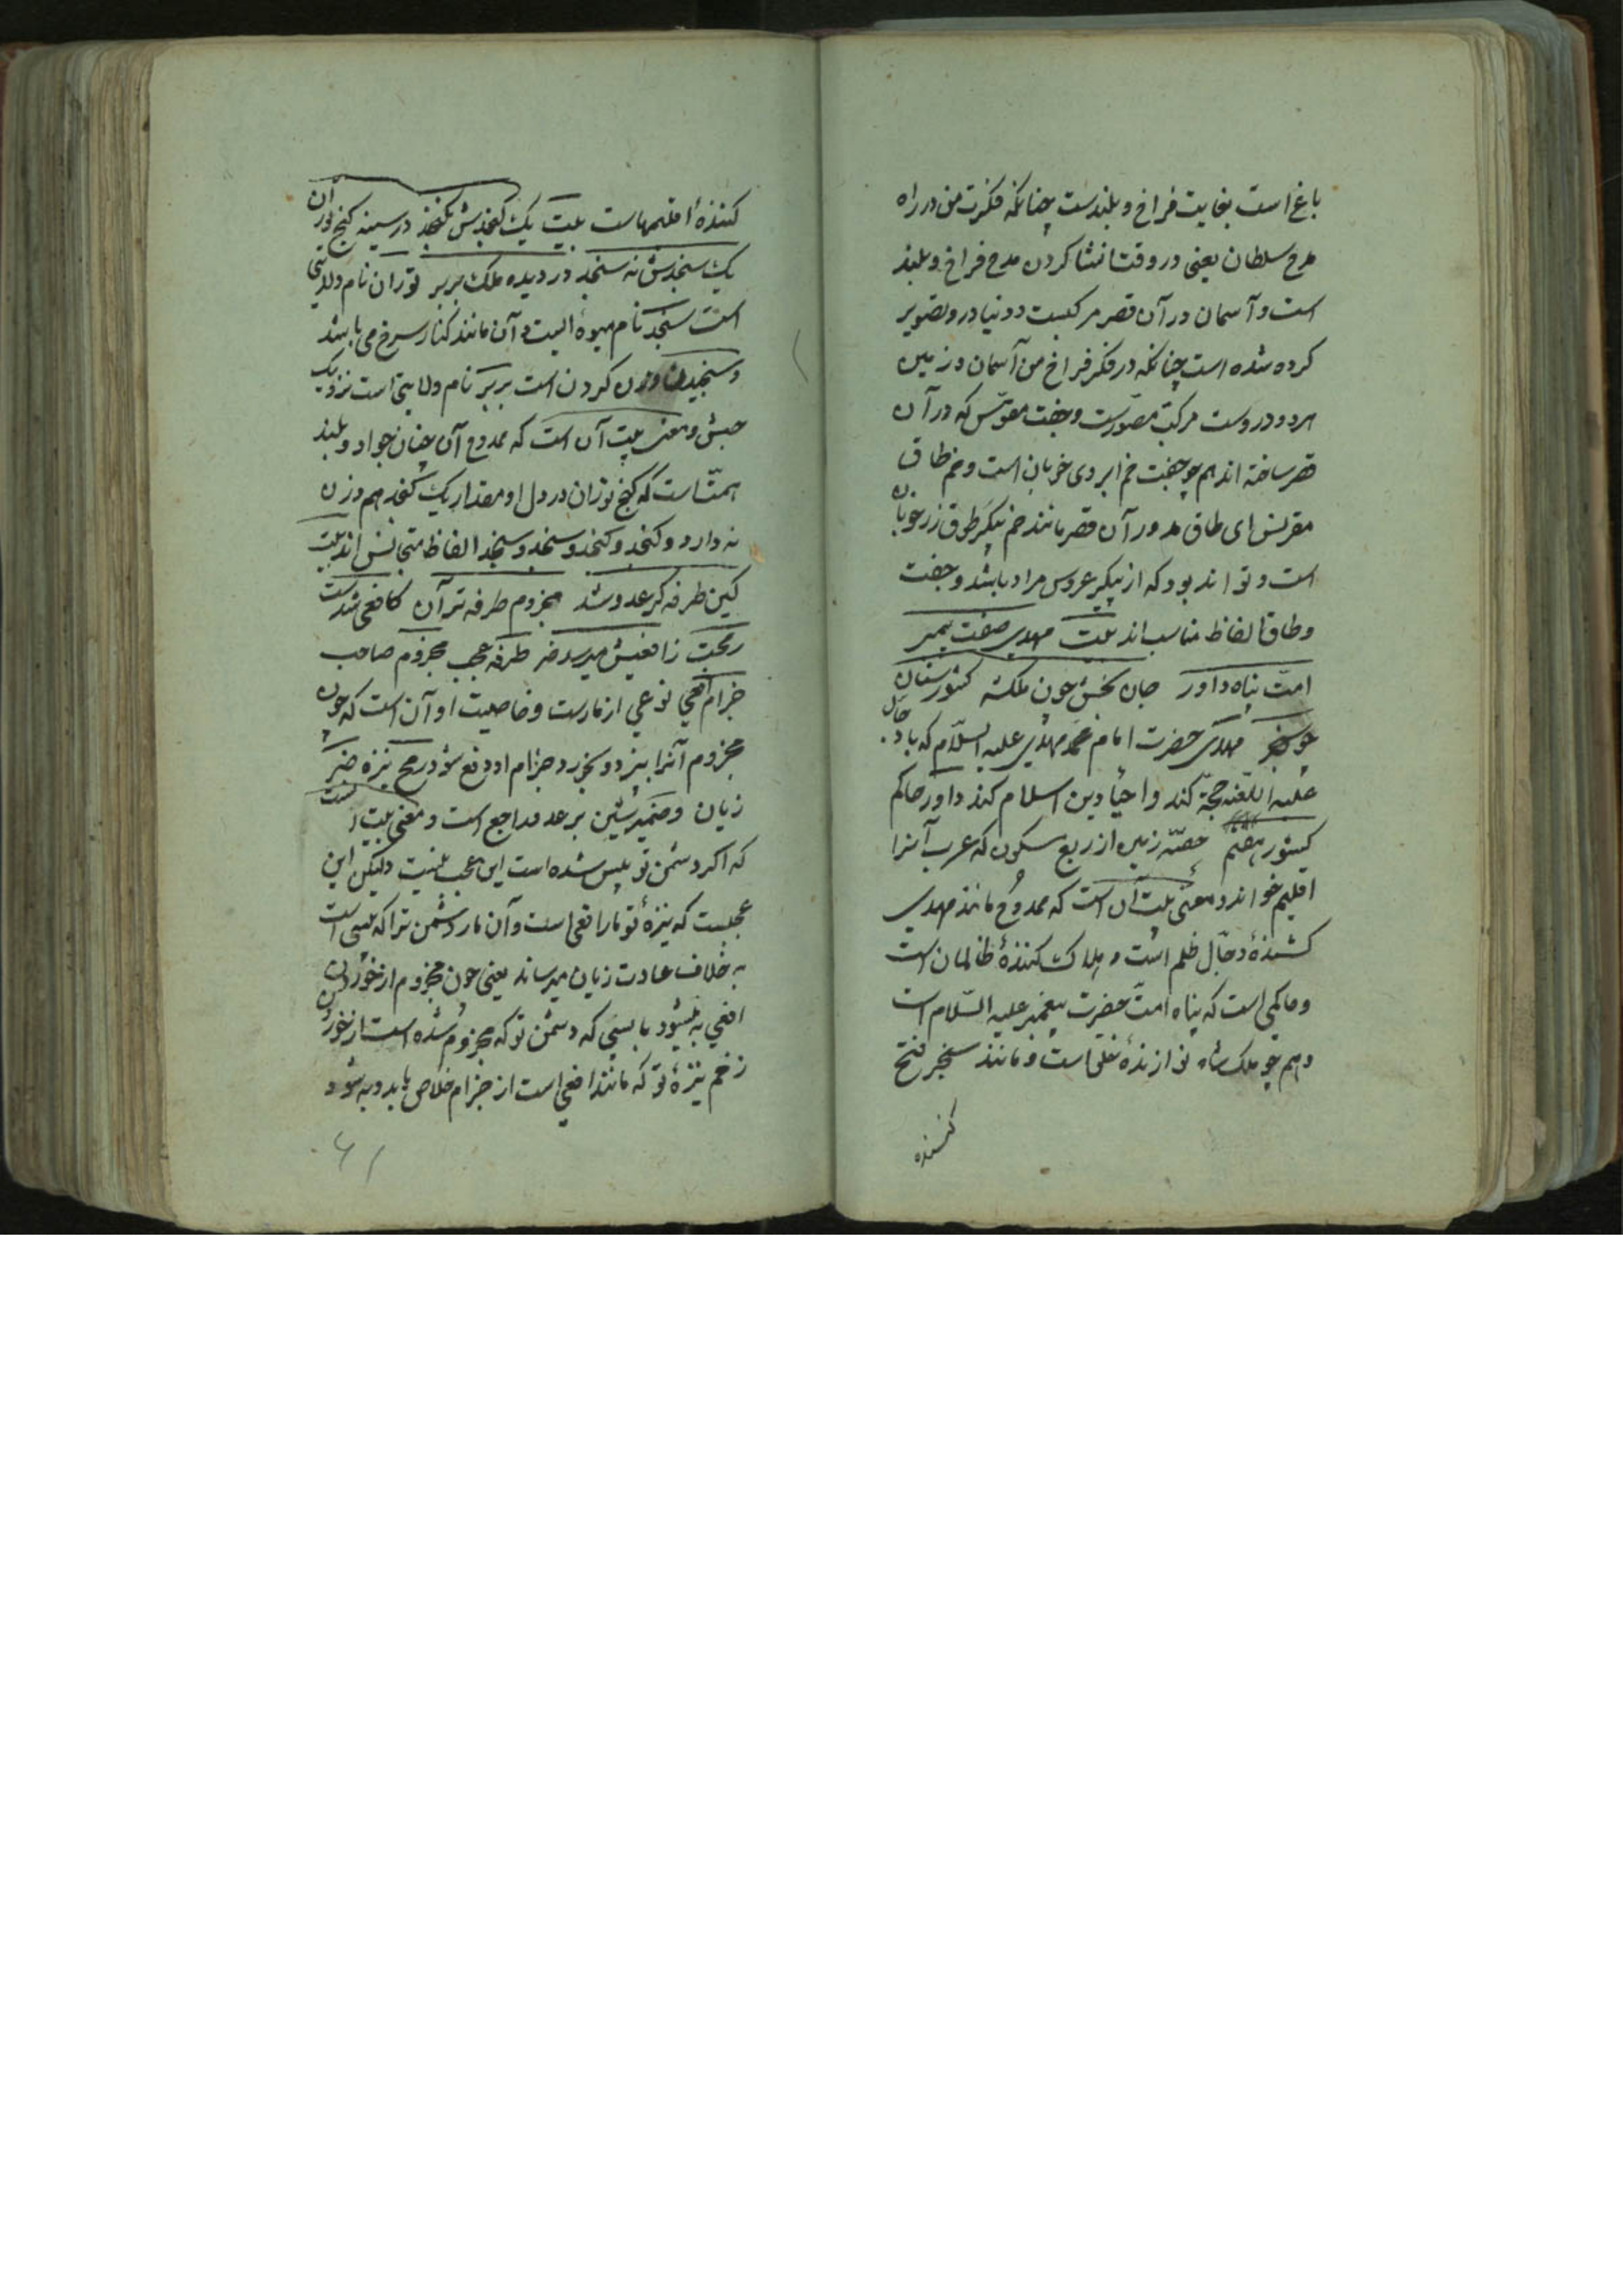 باغ است بغایت فراخ و بلندست چنانکه فکرت من در راه
مدح سلطان یعنی در وقت انشا کردن مدح فراخ و بلند
است و آسمان در آن قصر مرکبست و دنیا درو تصویر
کرده شده است چنانکه در فکر فراخ من آسمان و زمین
هر دو دروست مرکب مصورست و جفت مقوس که در آن
قصر ساخته اند هم چو جفت خم ابروی خوبان است و خم طاق
مقرنس ای طاق مدور آن قصر مانند خم پیکر طوق زر خوبان
است و تواند بود که از پیکر عروس مراد باشد و جفت
و طاق الفاظ مناسب اند بیت مهدی صفت پیمبر
امت پناه داور جان بخش چون ملکشه کشورستان
چو سنجر مهدی حضرت امام محمد مهدی علیه السلام که با دجال
علیه اللعنه حجة کند و احیاء دین اسلام کند داور حاکم
کشور هفتم حصه زمین از ربع مسکون که عرب آنرا
اقلیم خواند و معنی بیت آن است که ممدوح مانند مهدی
کشندهٔ دجال ظلم است و هلاک کنندهٔ ظالمان است
و حاکمی است که پناه امت حضرت پیغمبر علیه السلام است
و هم چو ملک شاه نوازندهٔ خلق است و مانند سنجر فتح
کننده
کنندهٔ اقلیمهاست بیت یک کنجدش نکنجد در سینه کنج توران
یک سنجدش نه سنجد در دیده ملک بربر توران نام ولایتی
است سنجد نام میوهٔ ایست و آن مانند کنار سرخ می باشد
و سنجیدن وزن کردن است بربر نام ولایتی است نزدیک
حبش و معنی بیت آن است که ممدوح آن چنان جواد و بلند
همت است که کنج توران در دل او مقدار یک کنجد هم وزن
نه دارد و کنجد و کنجد و سنجد و سنجد الفاظ متجانس اند بیت
کین طرفه کر عدو شد مجزوم طرفه تر آن کافعی شدست
رمحت زافعیش میرسد ضر طرفه عجب مجزوم صاحب
جزام افعی نوعی از مارست و خاصیت او آن است که چون
مجزوم آنرا بپزد و بخورد جزام او دفع شود رمح نیزه ضر
زیان و ضمیر شین بر عدو راجع است و معنی بیت آنست
که اکر دشمن تو پیس شده است این عجب نیست ولیکن این
عجبست که نیزهٔ تو مار افعی است و آن مار دشمن ترا که پیس است
بخلاف عادت زیان میرساند یعنی چون مجزوم از خوردن
افعی به میشود بایستی که دشمن تو که مجزوم شده است از خوردن
زخم نیزهٔ تو که مانند افعی است از جزام خلاص یابد و به شود